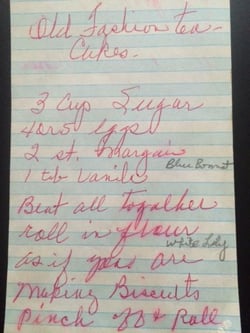 Old Fashion tea
Cakes.
3 Cup Sugar
4 or 5 eggs
2 st. Margain
Blue Bonnet
1 tb Vanila
Beat all togather
roll in flour
White Lily
as if you are
Making Biscuits
Pinch off & Roll